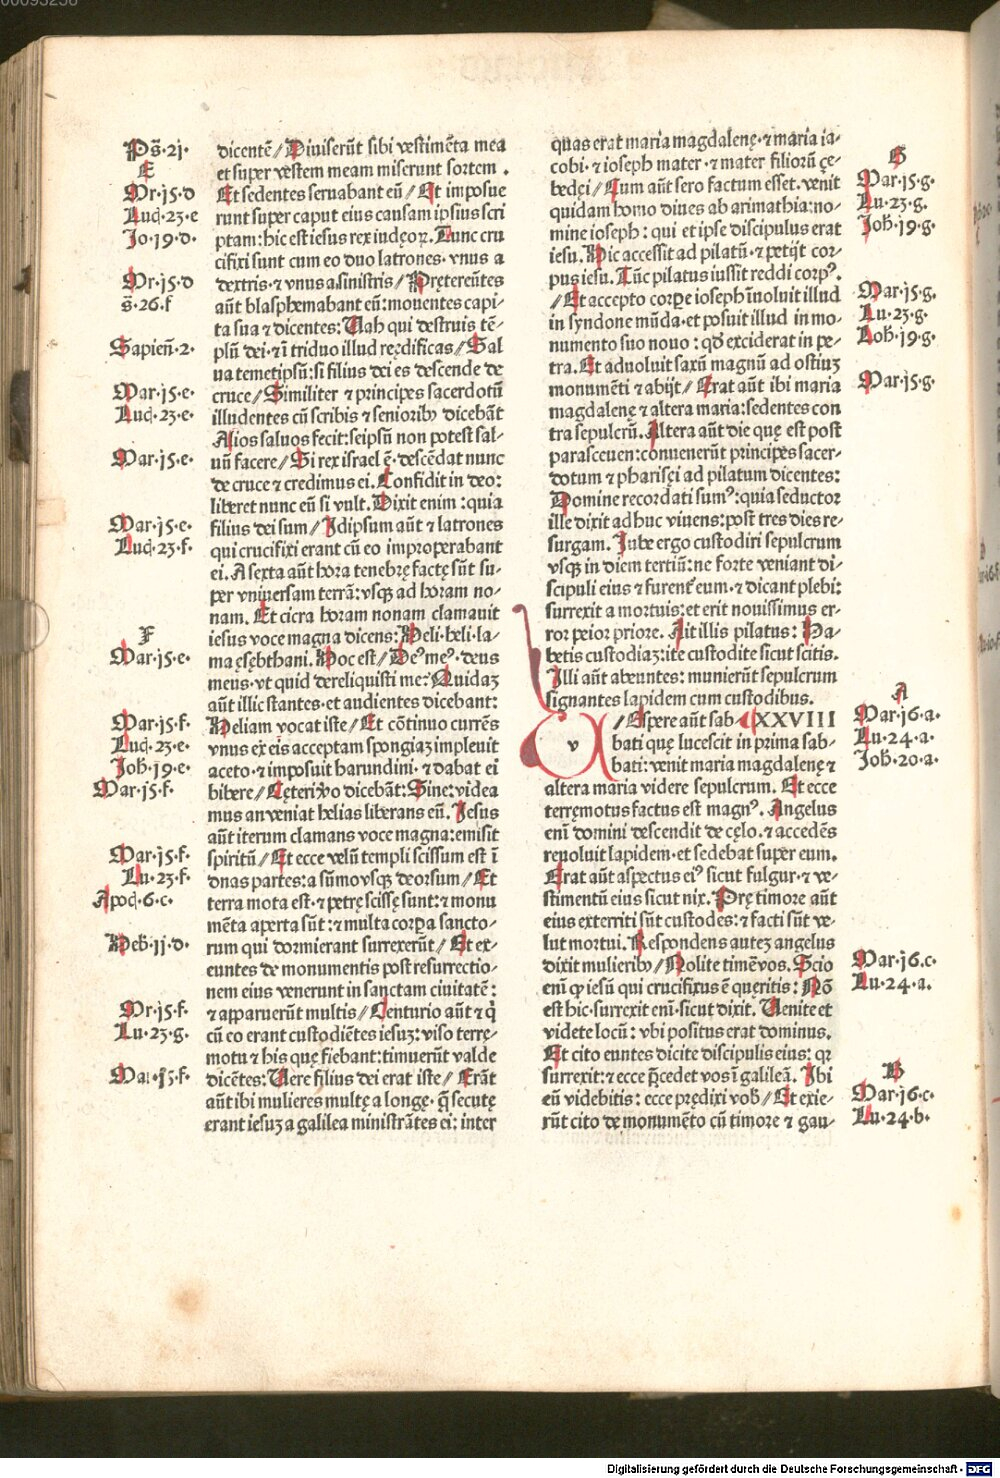 00095258
Ps̄·2j·
E
Mr·j5·d
Luc̄·23·e
Jo·19·d·
Mr·j5·d
s̄·26·f
Sapien̄·2·
Mar·j5·e·
Luc̄·23·e·
Mar·j5·e·
Mar·j5·e·
Luc̄·23·f·
F
Mar·j5·e·
Mar·j5·f·
Luc̄·23·e·
Joh̄·19·e·
Mar·j5·f·
Mar·j5·f·
Lu·23·f·
Apoc̄·6·c·
Heb̄·jj·d·
Mr·j5·f·
Lu·23·g·
Mar·j5·f·
dicentē// Diuiserūt sibi vestimēta mea
et super vestem meam miserunt sortem .
Et sedentes seruabant eū// Et imposue
runt super caput eius causam ipsius scri
ptam: hic est iesus rex iudęoꝝ. Tunc cru
cifixi sunt cum eo duo latrones· vnus a
dextris· ⁊ vnus a sinistris// Pręterēntes
aūt blasphemabant eū: mouentes capi-
ta sua ⁊ dicentes: Uah qui destruis tē-
plū dei· ⁊ ī triduo illud ręędificas// Sal
ua temetipsū: si filius dei es descende de
cruce// Similiter ⁊ principes sacerdotū
illudentes cū scribis ⁊ seniorib⁹ dicebāt
Alios saluos fecit: seipsū non potest sal-
uū facere// Si rex israel ē· descēdat nunc
de cruce ⁊ credimus ei. Confidit in deo:
liberet nunc eū si vult. Dixit enim: quia
filius dei sum// Idipsum aūt ⁊ latrones
qui crucifixi erant cū eo improperabant
ei. A sexta aūt hora tenebrę factę sūt su-
per vniuersam terrā: vsq̄ ad horam no-
nam. Et cicra horam nonam clamauit
iesus voce magna dicens: Heli· heli· la-
ma ęsębthani. Hoc est// De⁹ me⁹· deus
meus· vt quid dereliquisti me? Quidaz
aūt illic stantes· et audientes dicebant:
Heliam vocat iste// Et cōtinuo currēs
vnus ex eis acceptam spongiaz impleuit
aceto· ⁊ imposuit harundini· ⁊ dabat ei
bibere// Cęteri ꝟo dicebāt: Sine: videa
mus an veniat helias liberans eū. Jesus
aūt iterum clamans voce magna: emisit
spiritū// Et ecce velū templi scissum est ī
duas partes: a sūmo vsq̄ deorsum// Et
terra mota est· ⁊ petrę scissę sunt: ⁊ monu
mēta aperta sūt: ⁊ multa corꝑa sancto-
rum qui dormierant surrexerūt// Et ex-
euntes de monumentis post resurrectio-
nem eius venerunt in sanctam ciuitatē:
⁊ apparuerūt multis// Centurio aūt ⁊ q̄
cū eo erant custodiētes iesuz: viso terrę-
motu ⁊ his quę fiebant: timuerūt valde
dicētes: Uere filius dei erat iste// Erāt
aūt ibi mulieres multę a longe· q̄ secutę
erant iesuz a galilea ministrātes ei: inter
quas erat maria magdalenę· ⁊ maria ia-
cobi· ⁊ ioseph mater· ⁊ mater filiorū çe-
bedęi// Cum aūt sero factum esset· venit
quidam homo diues ab arimathia: no-
mine ioseph: qui et ipse discipulus erat
iesu. Hic accessit ad pilatū· ⁊ petijt cor-
pus iesu. Tūc pilatus iussit reddi corp⁹.
// Et accepto corꝑe ioseph īnoluit illud
in syndone mūda· et posuit illud in mo-
numento suo nouo: qd̄ exciderat in pe-
tra. Et aduoluit saxū magnū ad ostiuz
monumēti ⁊ abijt// Erat aūt ibi maria
magdalenę ⁊ altera maria: sedentes con
tra sepulcrū. Altera aūt die quę est post
parasceuen: conuenerūt principes sacer-
dotum ⁊ pharisęi ad pilatum dicentes:
Domine recordati sum⁹: quia seductor
ille dixit adhuc viuens: post tres dies re-
surgam. Jube ergo custodiri sepulcrum
vsq̄ in diem tertiū: ne forte veniant di-
scipuli eius ⁊ furent̄ eum· ⁊ dicant plebi:
surrexit a mortuis: et erit nouissimus er-
ror peior priore. Ait illis pilatus: Ha-
betis custodiaz: ite custodite sicut scitis.
Illi aūt abeuntes: munierūt sepulcrum
signantes lapidem cum custodibus.
v // Espere aūt sab- XXVIII
bati quę lucescit in prima sab-
bati: venit maria magdalenę ⁊
altera maria videre sepulcrum. Et ecce
terręmotus factus est magn⁹. Angelus
enī domini descendit de cęlo· ⁊ accedēs
reuoluit lapidem· et sedebat super eum.
Erat aūt aspectus ei⁹ sicut fulgur· ⁊ ve-
stimentū eius sicut nix. Prę timore aūt
eius exterriti sūt custodes: ⁊ facti sūt ve-
lut mortui. Respondens autez angelus
dixit mulierib⁹// Nolite timē vos. Scio
enī ꝙ iesū qui crucifixus ē quęritis: Nō
est hic· surrexit enī· sicut dixit. Uenite et
videte locū: vbi positus erat dominus.
Et cito euntes dicite discipulis eius: qꝛ
surrexit: ⁊ ecce p̄cedet vos ī galileā. Ibi
eū videbitis: ecce prędixi vob̄// Et exie-
rūt cito de monumēto cū timore ⁊ gau-
G
Mar·j5·g·
Lu·23·g·
Joh̄·19·g·
Mar·j5·g·
Lu·23·g·
Joh̄·19·g·
Mar·j5·g·
A
Mar·j6·a·
Lu·24·a·
Joh̄·20·a·
Mar·j6·c·
Lu·24·a·
B
Mar·j6·c·
Lu·24·b·
Digitalisierung gefördert durch die Deutsche Forschungsgemeinschaft - DFG